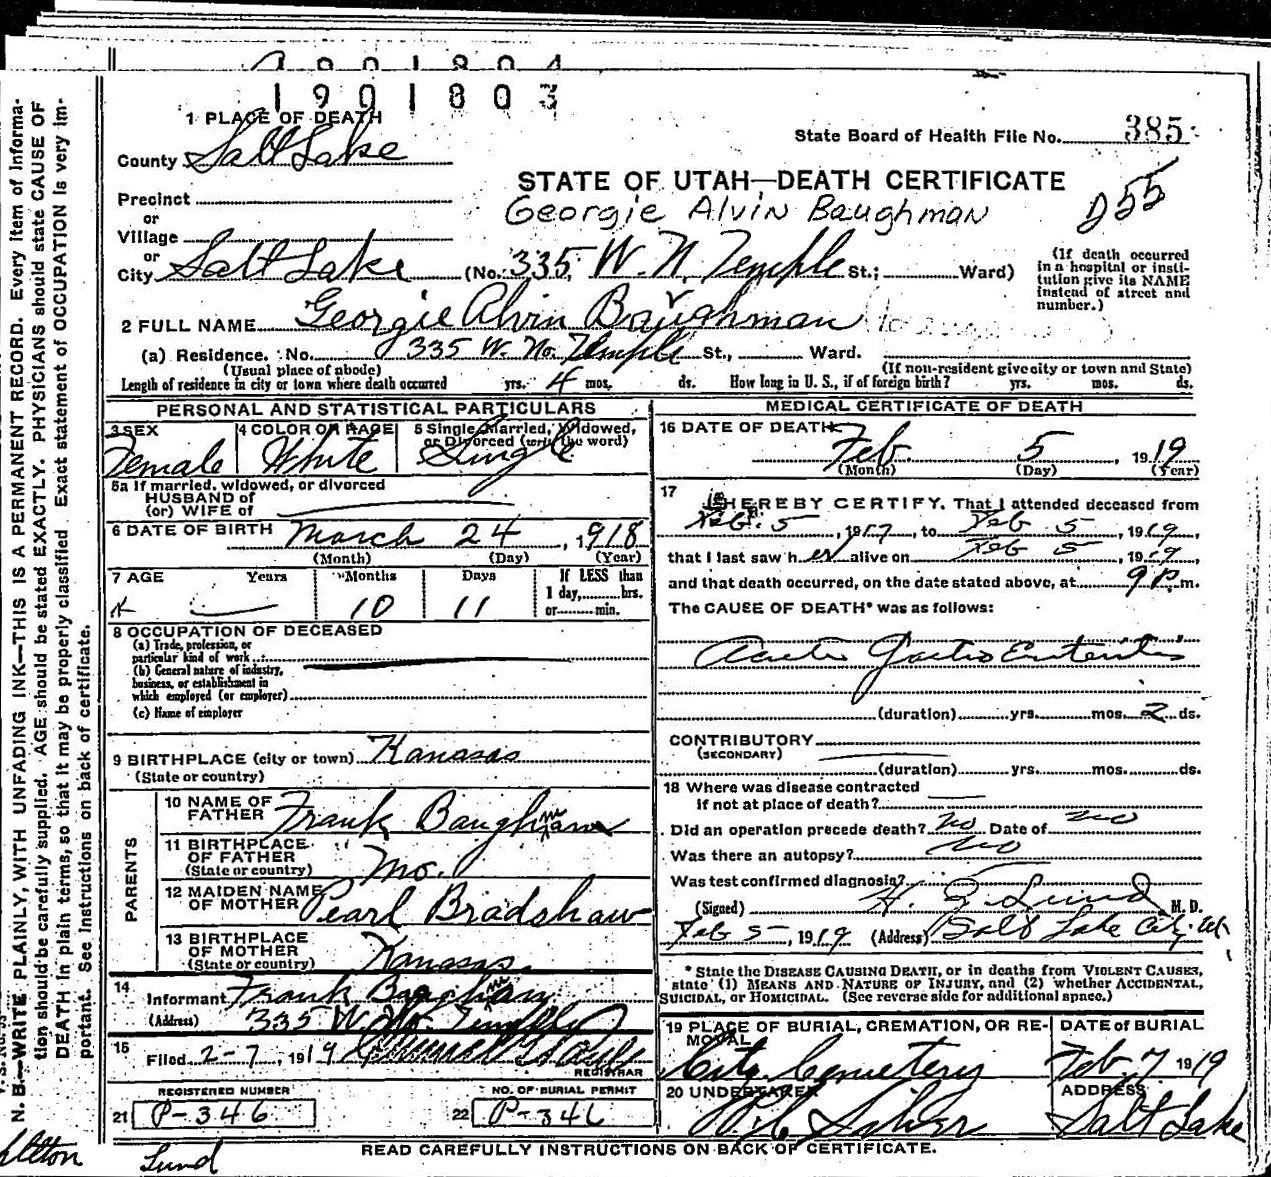 1901804
1901803
1 PLACE OF DEATH
State Board of Health File No. 385
County Salt Lake
STATE OF UTAH—DEATH CERTIFICATE
Precinct
Georgie Alvin Baughman
D55
or
Village
or
City Salt Lake (No. 335, W. N. Temple St.; Ward)
(If death occurred in a hospital or institution give its NAME instead of street and number.)
2 FULL NAME Georgie Alvin Baughman
(a) Residence. No. 335 W. No. Temple St., Ward.
(Usual place of abode) (If non-resident give city or town and State)
Length of residence in city or town where death occurred yrs. 4 mos. ds. How long in U. S., if of foreign birth? yrs. mos. ds.
PERSONAL AND STATISTICAL PARTICULARS
3 SEX 4 COLOR OR RACE 5 Single, Married, Widowed, or Divorced (write the word)
Female White Single
5a If married, widowed, or divorced
HUSBAND of
(or) WIFE of
6 DATE OF BIRTH March 24, 1918
(Month) (Day) (Year)
7 AGE Years Months Days If LESS than
1 day, hrs.
10 11 or min.
8 OCCUPATION OF DECEASED
(a) Trade, profession, or
particular kind of work
(b) General nature of industry,
business, or establishment in
which employed (or employer)
(c) Name of employer
9 BIRTHPLACE (city or town) Kanasas
(State or country)
PARENTS
10 NAME OF FATHER Frank Baughman
11 BIRTHPLACE OF FATHER Mo.
(State or country)
12 MAIDEN NAME OF MOTHER Pearl Bradshaw
13 BIRTHPLACE OF MOTHER Kanasas.
(State or country)
14 Informant Frank Baughman
(Address) 335 W. No. Temple
15 Filed 2-7, 1919
REGISTRAR
REGISTERED NUMBER NO. OF BURIAL PERMIT
21 P-346 22 P-346
MEDICAL CERTIFICATE OF DEATH
16 DATE OF DEATH Feb 5, 1919
(Month) (Day) (Year)
17 I HEREBY CERTIFY, That I attended deceased from
Feb. 5, 1919, to Feb 5, 1919,
that I last saw her alive on Feb 5, 1919,
and that death occurred, on the date stated above, at 9 P m.
The CAUSE OF DEATH* was as follows:
Acute Gastro Enteritis
(duration) yrs. mos. 2 ds.
CONTRIBUTORY
(SECONDARY)
(duration) yrs. mos. ds.
18 Where was disease contracted
if not at place of death?
Did an operation precede death? No Date of no
Was there an autopsy? No
Was test confirmed diagnosis?
(Signed) H. Z. Lund M. D.
Feb 5, 1919 (Address) Salt Lake City, Ut.
* State the DISEASE CAUSING DEATH, or in deaths from VIOLENT CAUSES,
state (1) MEANS AND NATURE OF INJURY, and (2) whether ACCIDENTAL,
SUICIDAL, or HOMICIDAL. (See reverse side for additional space.)
19 PLACE OF BURIAL, CREMATION, OR REMOVAL DATE OF BURIAL
City Cemetery Feb. 7 1919
20 UNDERTAKER ADDRESS
Salt Lake
READ CAREFULLY INSTRUCTIONS ON BACK OF CERTIFICATE.
Lund
N. B.—WRITE PLAINLY, WITH UNFADING INK—THIS IS A PERMANENT RECORD. Every item of informa-
tion should be carefully supplied. AGE should be stated EXACTLY. PHYSICIANS should state CAUSE OF
DEATH in plain terms, so that it may be properly classified. Exact statement of OCCUPATION is very im-
portant. See instructions on back of certificate.